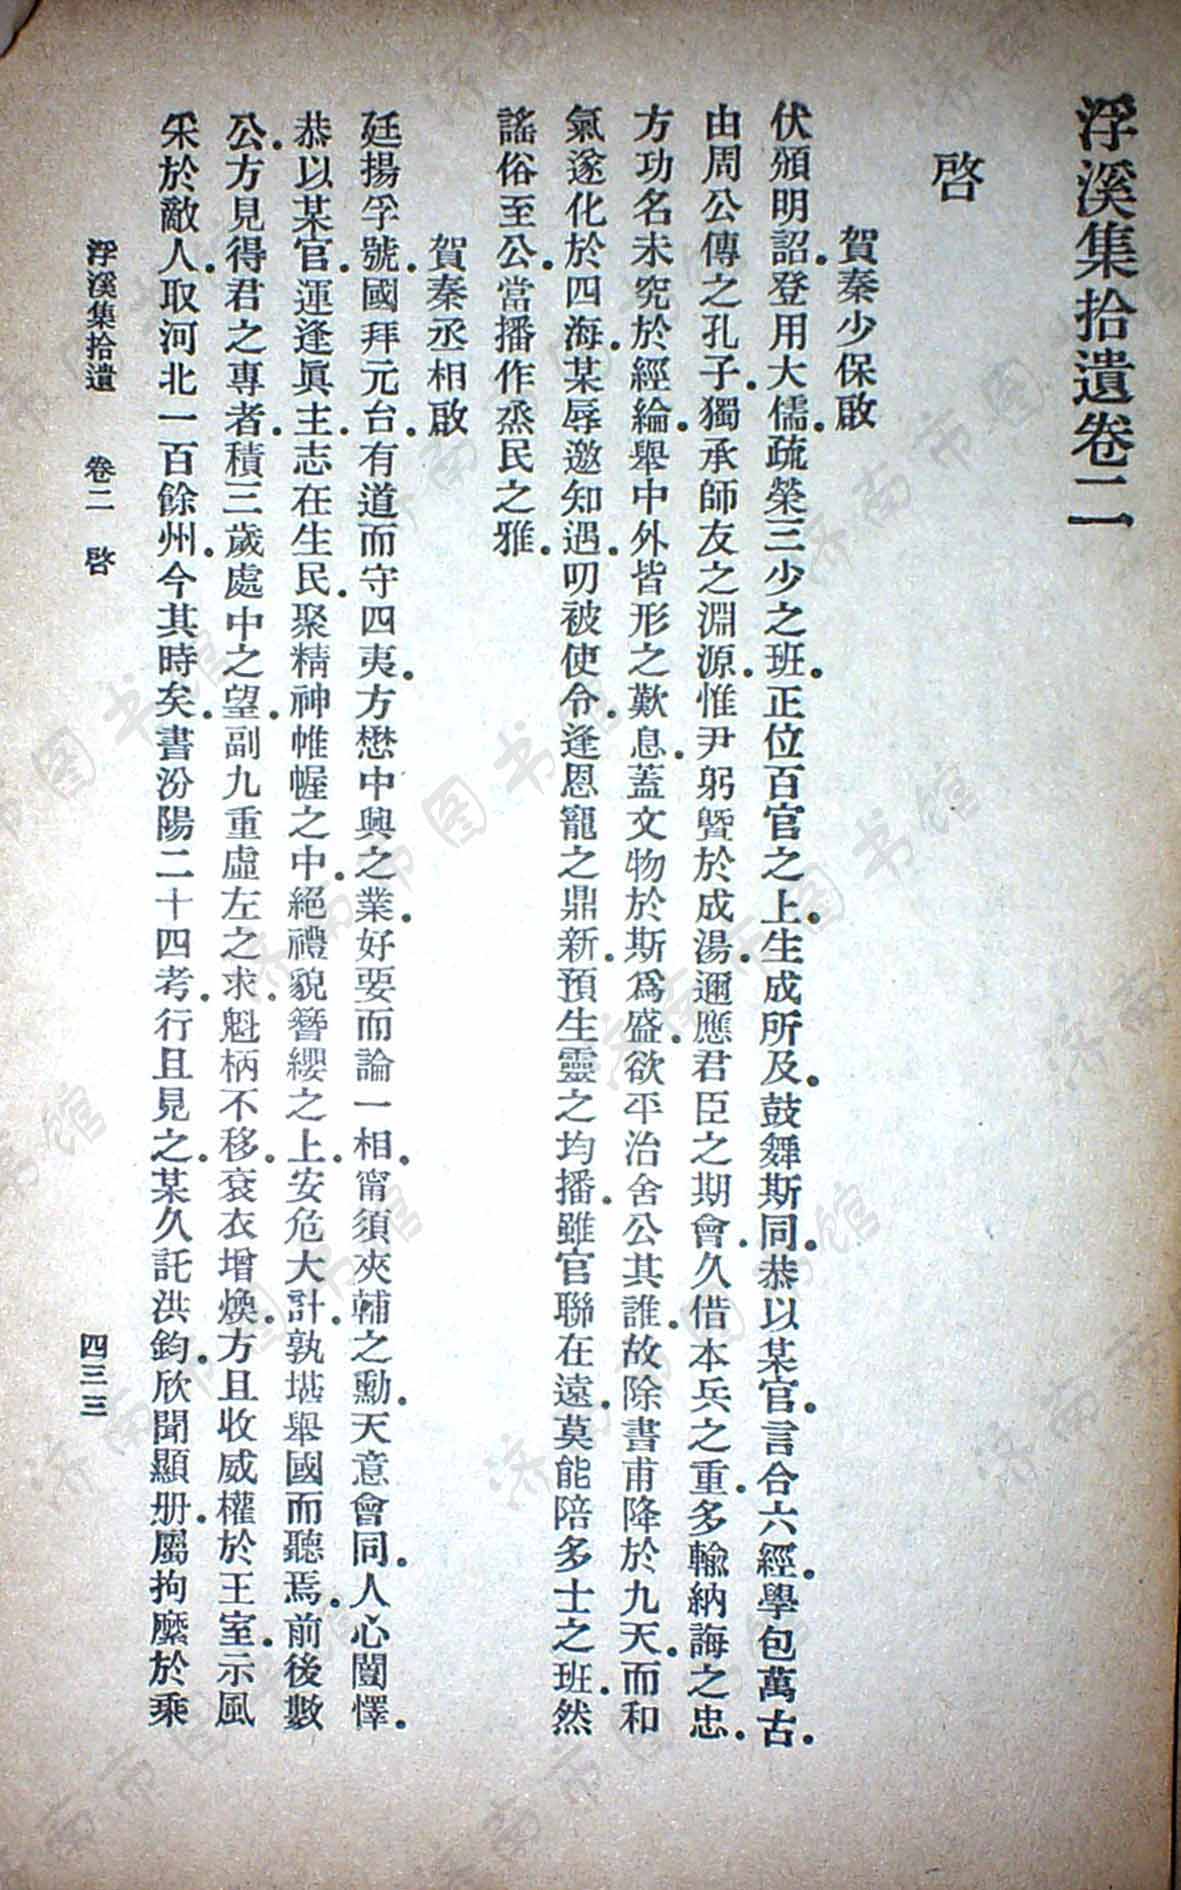 浮溪集拾遺卷二
啓
賀秦少保啟
伏頒明詔。登用大儒。疏榮三少之班。正位百官之上。生成所及。鼓舞斯同。恭以某官。言合六經。學包萬古。
由周公傳之孔子。獨承師友之淵源。惟尹躬曁於成湯。邇應君臣之期會。久借本兵之重。多輸納誨之忠。
方功名未究於經綸。舉中外皆形之歎息。蓋文物於斯爲盛。欲平治舍公其誰。故除書甫降於九天。而和
氣遂化於四海。某辱邀知遇。叨被使令。逢恩寵之鼎新。預生靈之均播。雖官聯在遠。莫能陪多士之班。然
謠俗至公。當播作烝民之雅。
賀秦丞相啟
廷揚孚號。國拜元台。有道而守四夷。方懋中興之業。好要而論一相。甯須夾輔之勳。天意會同。人心闓懌。
恭以某官。運逢眞主。志在生民。聚精神帷幄之中。絕禮貌簪纓之上。安危大計。孰堪舉國而聽焉。前後數
公。方見得君之專者。積三歲處中之望。副九重虛左之求。魁柄不移。袞衣增煥。方且收威權於王室。示風
采於敵人。取河北一百餘州。今其時矣。書汾陽二十四考。行且見之。某久託洪鈞。欣聞顯册。屬拘麾於乘
浮溪集拾遺 卷二 啓 四三三
济南市图书馆